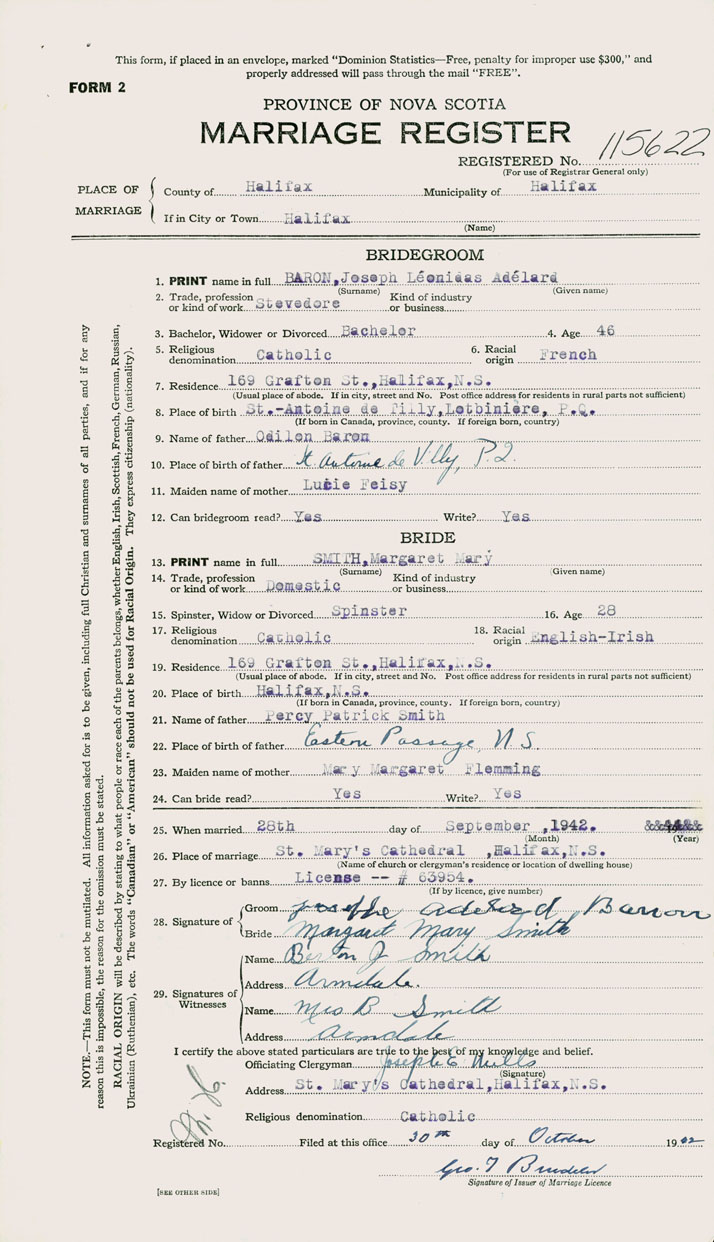 This form, if placed in an envelope, marked “Dominion Statistics—Free, penalty for improper use $300,” and
properly addressed will pass through the mail “FREE”.
FORM 2
PROVINCE OF NOVA SCOTIA
MARRIAGE REGISTER
REGISTERED No. 115622
(For use of Registrar General only)
PLACE OF MARRIAGE
County of Halifax Municipality of Halifax
If in City or Town Halifax
(Name)
BRIDEGROOM
1. PRINT name in full BARON, Joseph Léonidas Adélard
(Surname) (Given name)
2. Trade, profession or kind of work Stevedore Kind of industry or business
3. Bachelor, Widower or Divorced Bachelor 4. Age 46
5. Religious denomination Catholic 6. Racial origin French
7. Residence 169 Grafton St., Halifax, N.S.
(Usual place of abode. If in city, street and No. Post office address for residents in rural parts not sufficient)
8. Place of birth St.-Antoine de Tilly, Lotbinière, P.Q.
(If born in Canada, province, county. If foreign born, country)
9. Name of father Odilon Baron
10. Place of birth of father St. Antoine de Villy, P.Q.
11. Maiden name of mother Lucie Feisy
12. Can bridegroom read? Yes Write? Yes
BRIDE
13. PRINT name in full SMITH, Margaret Mary
(Surname) (Given name)
14. Trade, profession or kind of work Domestic Kind of industry or business
15. Spinster, Widow or Divorced Spinster 16. Age 28
17. Religious denomination Catholic 18. Racial origin English-Irish
19. Residence 169 Grafton St., Halifax, N.S.
(Usual place of abode. If in city, street and No. Post office address for residents in rural parts not sufficient)
20. Place of birth Halifax, N.S.
(If born in Canada, province, county. If foreign born, country)
21. Name of father Percy Patrick Smith
22. Place of birth of father Eastern Passage, N.S.
23. Maiden name of mother Mary Margaret Flemming
24. Can bride read? Yes Write? Yes
25. When married 28th day of September, 1942.
(Month) (Year)
26. Place of marriage St. Mary's Cathedral, Halifax, N.S.
(Name of church or clergyman's residence or location of dwelling house)
27. By licence or banns License -- # 63954.
(If by licence, give number)
28. Signature of
Groom Josephe Adelard Barron
Bride Margaret Mary Smith
29. Signatures of Witnesses
Name Smith
Address Armdale.
Name Mrs B Smith
Address Armdale
I certify the above stated particulars are true to the best of my knowledge and belief.
Officiating Clergyman Joseph E Mills
(Signature)
Address St. Mary's Cathedral, Halifax, N.S.
Religious denomination Catholic
Registered No. Filed at this office 30th day of October 1942
Geo. T
Signature of Issuer of Marriage Licence
[SEE OTHER SIDE]
NOTE.—This form must not be mutilated. All information asked for is to be given, including full Christian and surnames of all parties, and if for any
reason this is impossible, the reason for the omission must be stated.
RACIAL ORIGIN will be described by stating to what people or race each of the parents belongs, whether English, Irish, Scottish, French, German, Russian,
Ukrainian (Ruthenian), etc. The words “Canadian” or “American” should not be used for Racial Origin. They express citizenship (nationality).